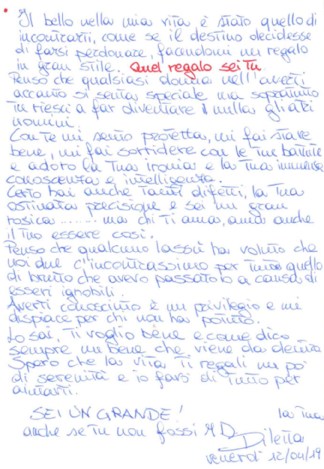 Il bello nella mia vita è stato quello di
incontrarti, come se il destino decidesse
di farsi perdonare, facendomi un regalo
in gran stile. Quel regalo sei tu.
Penso che qualsiasi donna nell'averti
accanto si senta speciale ma soprattutto
tu riesci a far diventare il nulla gli altri
uomini.
Con te mi sento protetta, mi fai stare
bene, mi fai sorridere con le tue battute
e adoro la tua ironia e la tua immensa
conoscenza e intelligenza.
Certo hai anche tanti difetti, la tua
ostinata precisione e sei un gran
rosica....... ma chi ti ama, ama anche
il tuo essere così.
Penso che qualcuno lassù ha voluto che
noi due c'incontrassimo per tutto quello
di brutto che avevo passato a causa di
esseri ignobili.
Averti conosciuto è un privilegio e mi
dispiace per chi non ha potuto.
Lo sai, ti voglio bene e come dico
sempre un bene che viene da dentro.
Spero che la vita ti regali un po'
di serenità e io farò di tutto per
aiutarti.
SEI UN GRANDE!
anche se tu non fossi M.D.
la tua
Diletta
venerdì 12/04/19